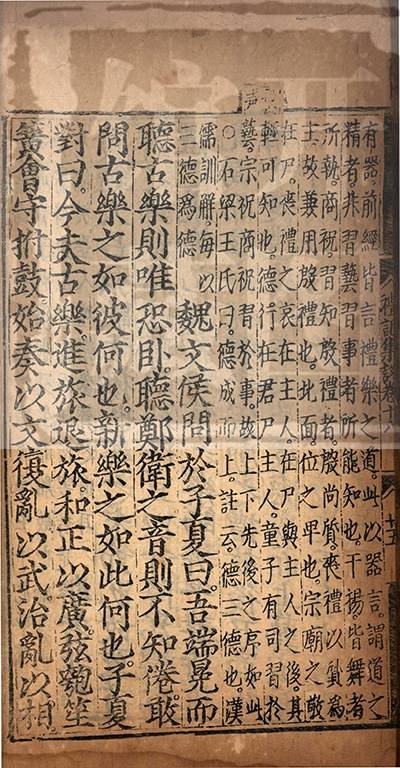 有器前經皆言禮樂之道。此以器言。謂道之
精者。非習藝習事者所能知也。干揚皆舞者
所執。商祝。習知殷禮者。殷尚質。喪禮以質為
主。故兼用殷禮也。北面。位之卑也。宗廟之敬
在尸。喪禮之哀在主人。在尸與主人之後。其
輕可知也。德行在君尸主人。童子有司習於
藝。宗祝商祝習於事。故上下先後之序如此
○石梁王氏曰。德成而上。註云。德三德也。漢
儒訓解。每以
三德為德
魏文侯問於子夏曰。吾端冕而
聽古樂則唯恐臥。聽鄭衛之音則不知倦。敢
問古樂之如彼何也。新樂之如此何也。子夏
對曰。今夫古樂。進旅退旅。和正以廣。弦匏笙
簧會守拊鼓。始奏以文。復亂以武。治亂以相
禮記集說卷十八
十五